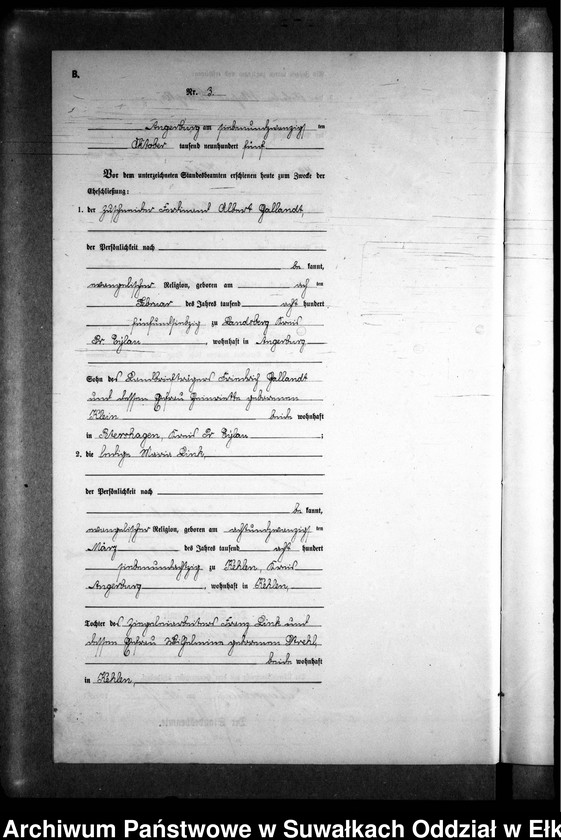 B.
Nr. 3.
Angerburg am siebenundzwanzigsten
Oktober tausend neunhundert fünf
Vor dem unterzeichneten Standesbeamten erschienen heute zum Zwecke der
Eheschließung:
1. der Zuschneider Ferdinand Albert Gallandt,
der Persönlichkeit nach
be kannt,
evangelischer Religion, geboren am ten
Februar des Jahres tausend acht hundert
fünfundsiebzig zu Landsberg Kreis
Pr. Eylau, wohnhaft in Angerburg
Sohn des Landbriefträgers Friedrich Gallandt
und dessen Ehefrau Henriette geborenen
Klein beide wohnhaft
in Kreis Pr. Eylau;
2. die ledige Maria Link,
der Persönlichkeit nach
be kannt,
evangelischer Religion, geboren am achtundzwanzigsten
März des Jahres tausend acht hundert
siebenundachtzig zu Kehlen, Kreis
Angerburg, wohnhaft in Kehlen,
Tochter des Ziegeleiarbeiters Franz Link und
dessen Ehefrau Wilhelmine geborenen
beide wohnhaft
in Kehlen,
Archiwum Państwowe w Suwałkach Oddział w Ełk